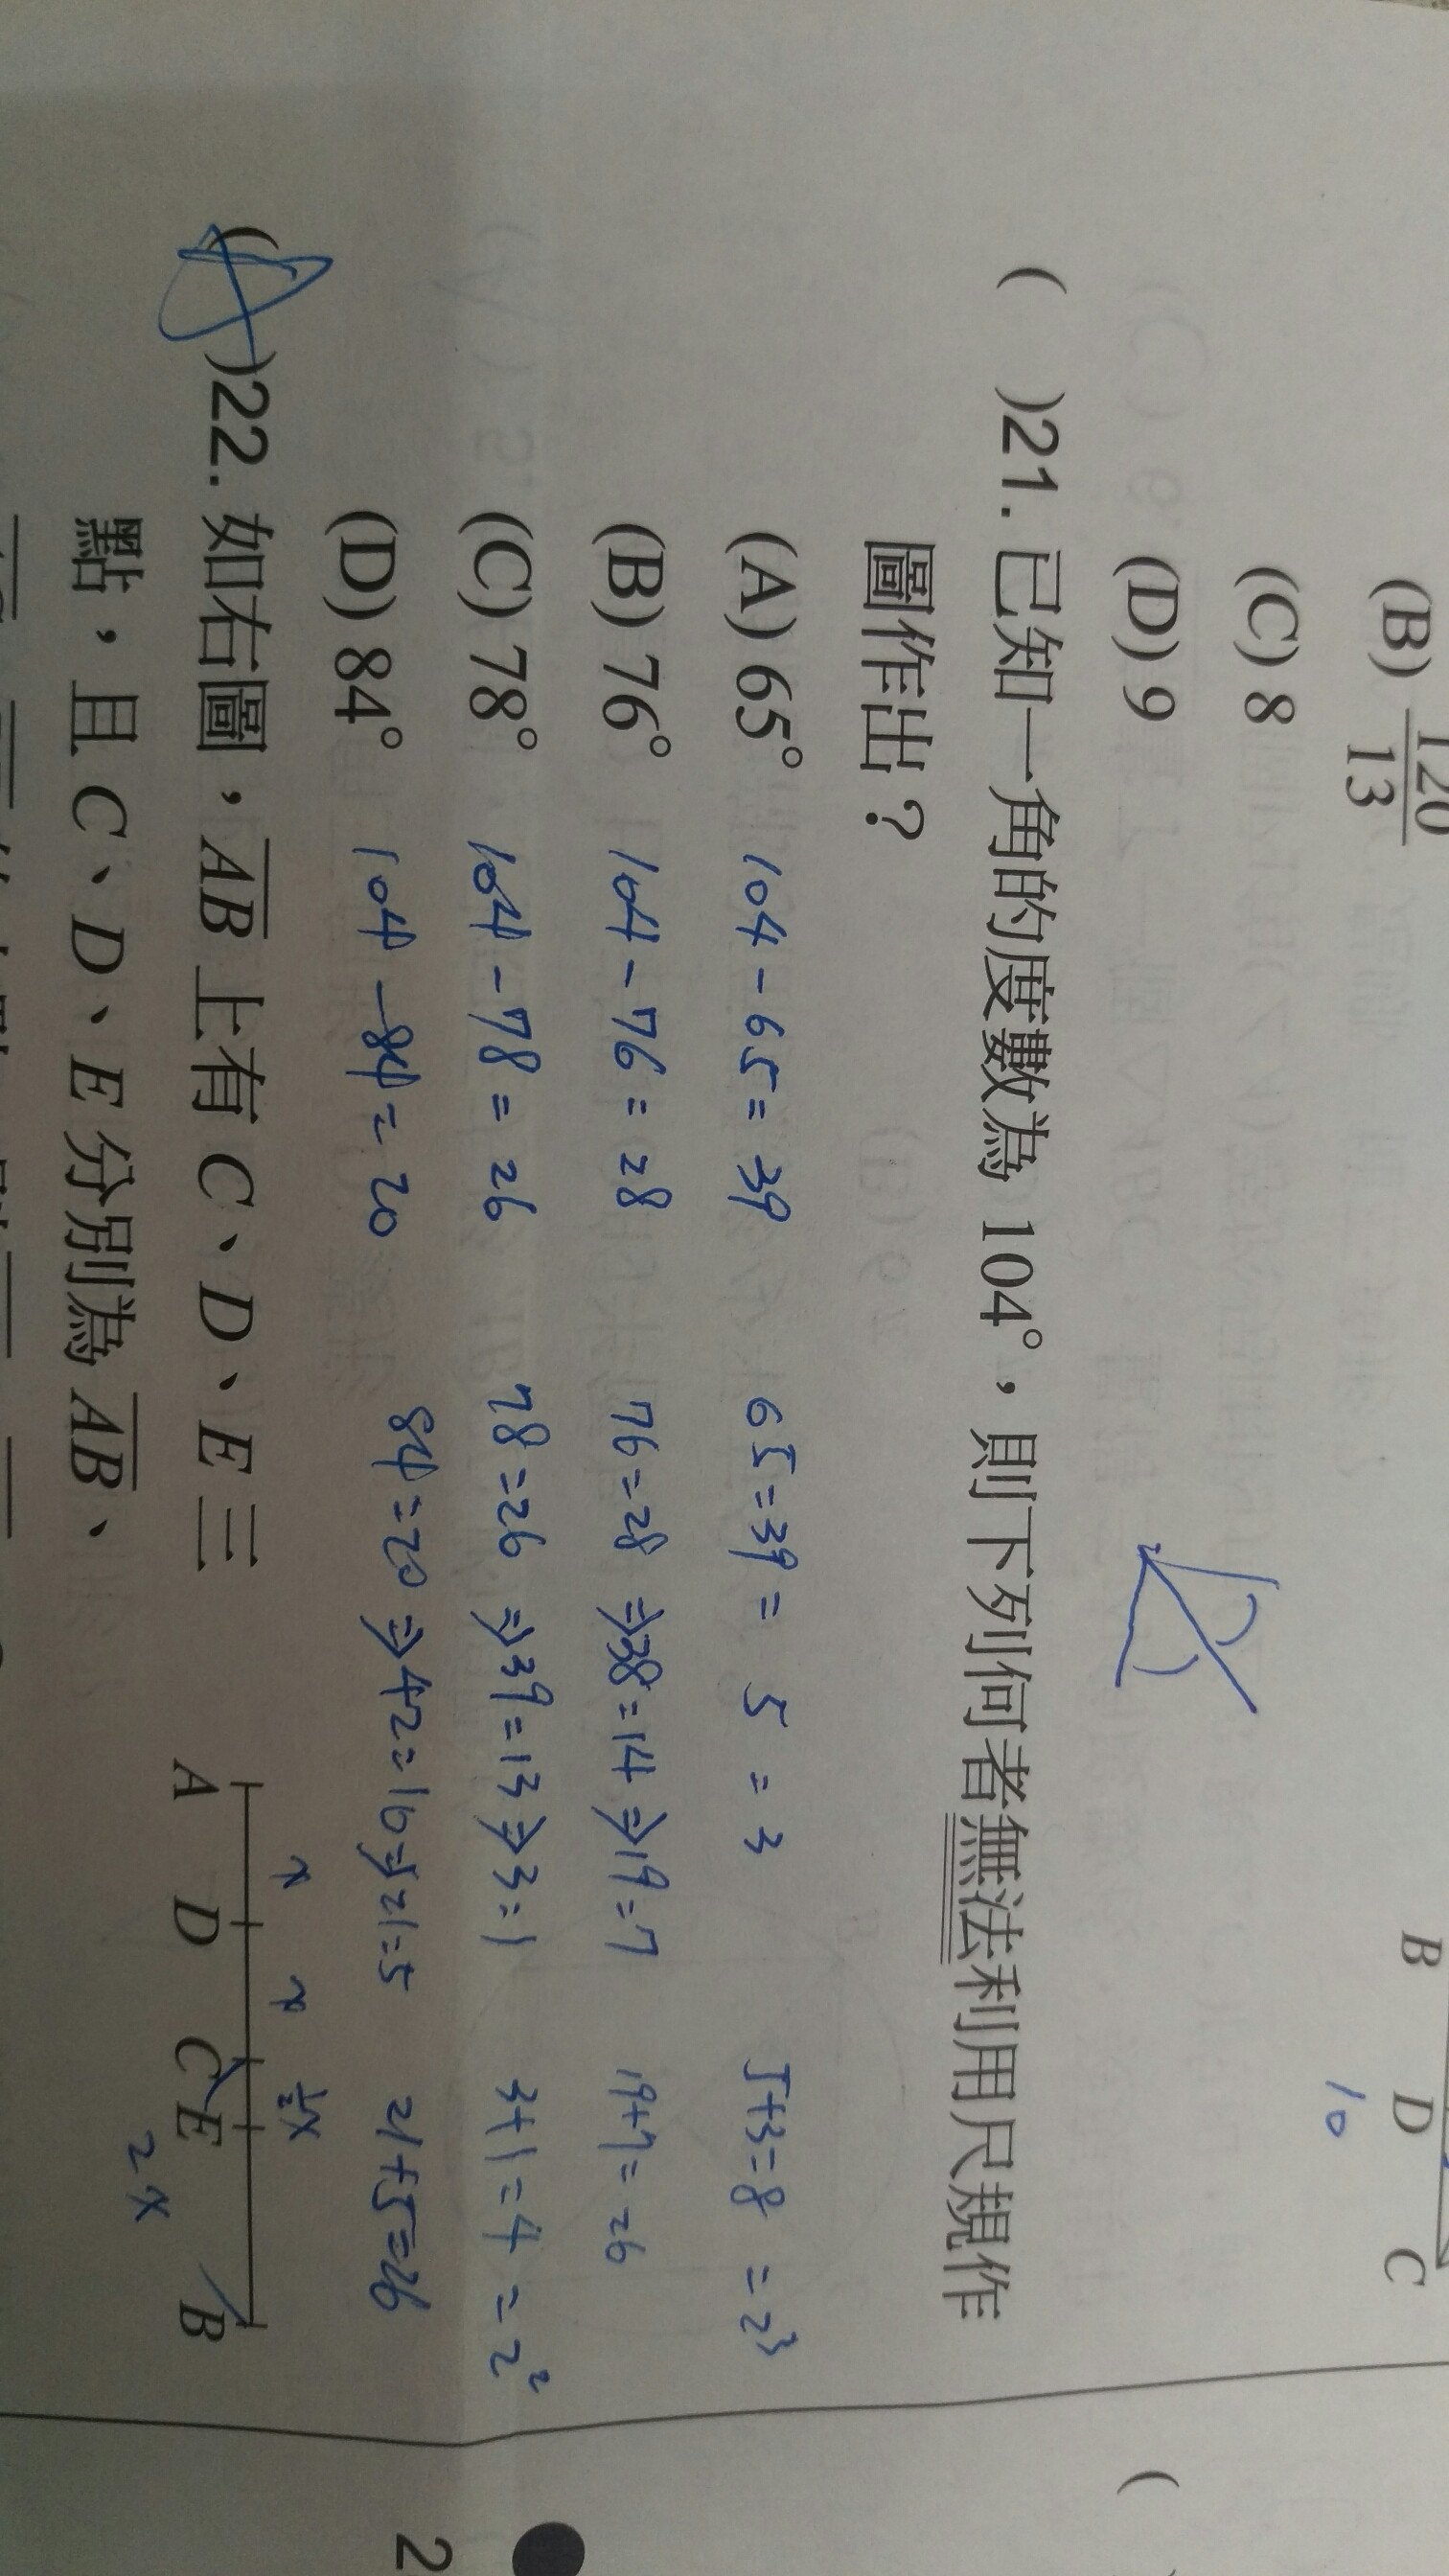 (B) 120/13
(C) 8
(D) 9
B D C
10
( )21. 已知一角的度數為 104°，則下列何者無法利用尺規作
圖作出？
(A) 65° 104-65=39 65=39= 5 = 3 5+3=8 = 2³
(B) 76° 104-76=28 76=28 ⇒38=14 ⇒19=7 19+7=26
(C) 78° 104-78=26 78=26 ⇒39=13 ⇒3=1 3+1=4 = 2²
(D) 84° 104-84=20 84=20 ⇒42=10⇒21=5 21+5=26
( )22. 如右圖，AB 上有 C、D、E 三
點，且 C、D、E 分別為 AB、
x x ½x
A D C E B
2x
(
2